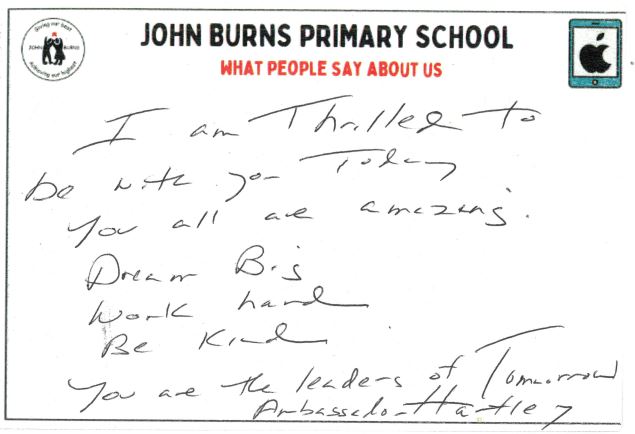 Giving our best
JOHN BURNS
Achieving our highest
JOHN BURNS PRIMARY SCHOOL
WHAT PEOPLE SAY ABOUT US
I am Thrilled to
be with you Today
You all are amazing.
Dream Big
Work hard
Be Kind
You are the leaders of Tomorrow
Ambassador Hartley